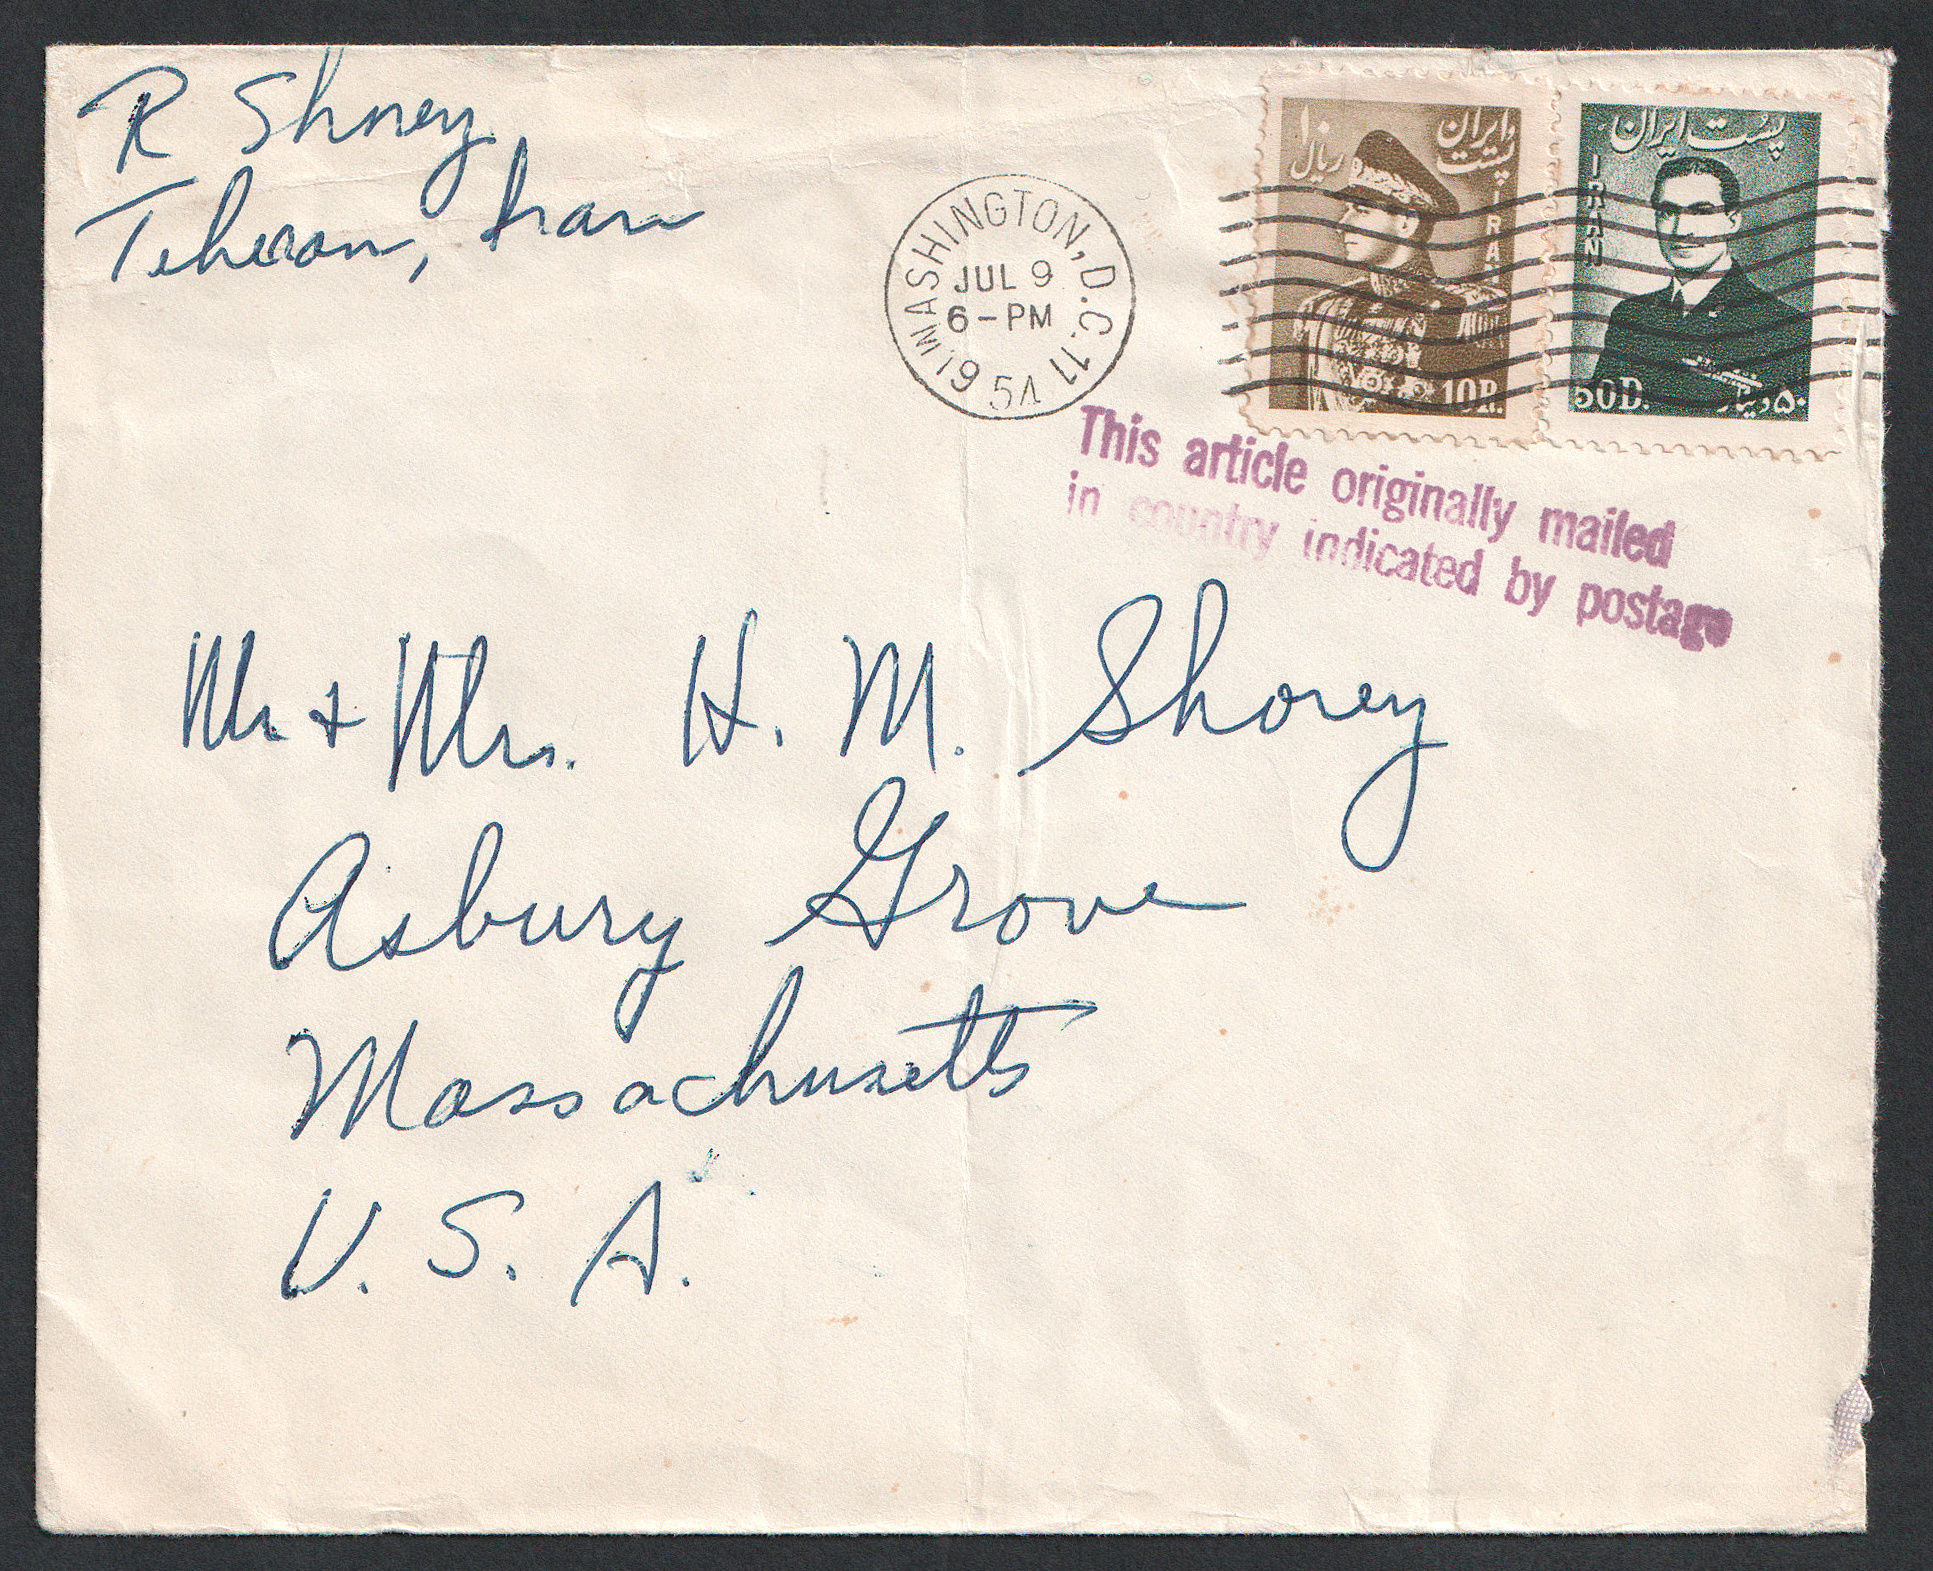 R Shorey
Teheran, Iran
WASHINGTON, D.C. 11
JUL 9
6-PM
1954
۱۰ ریال
پست ایران
IRAN
10R.
پست ایران
IRAN
50D.
۵۰ دینار
This article originally mailed
in country indicated by postage
Mr + Mrs. H. M. Shorey
Asbury Grove
Massachusetts
U. S. A.